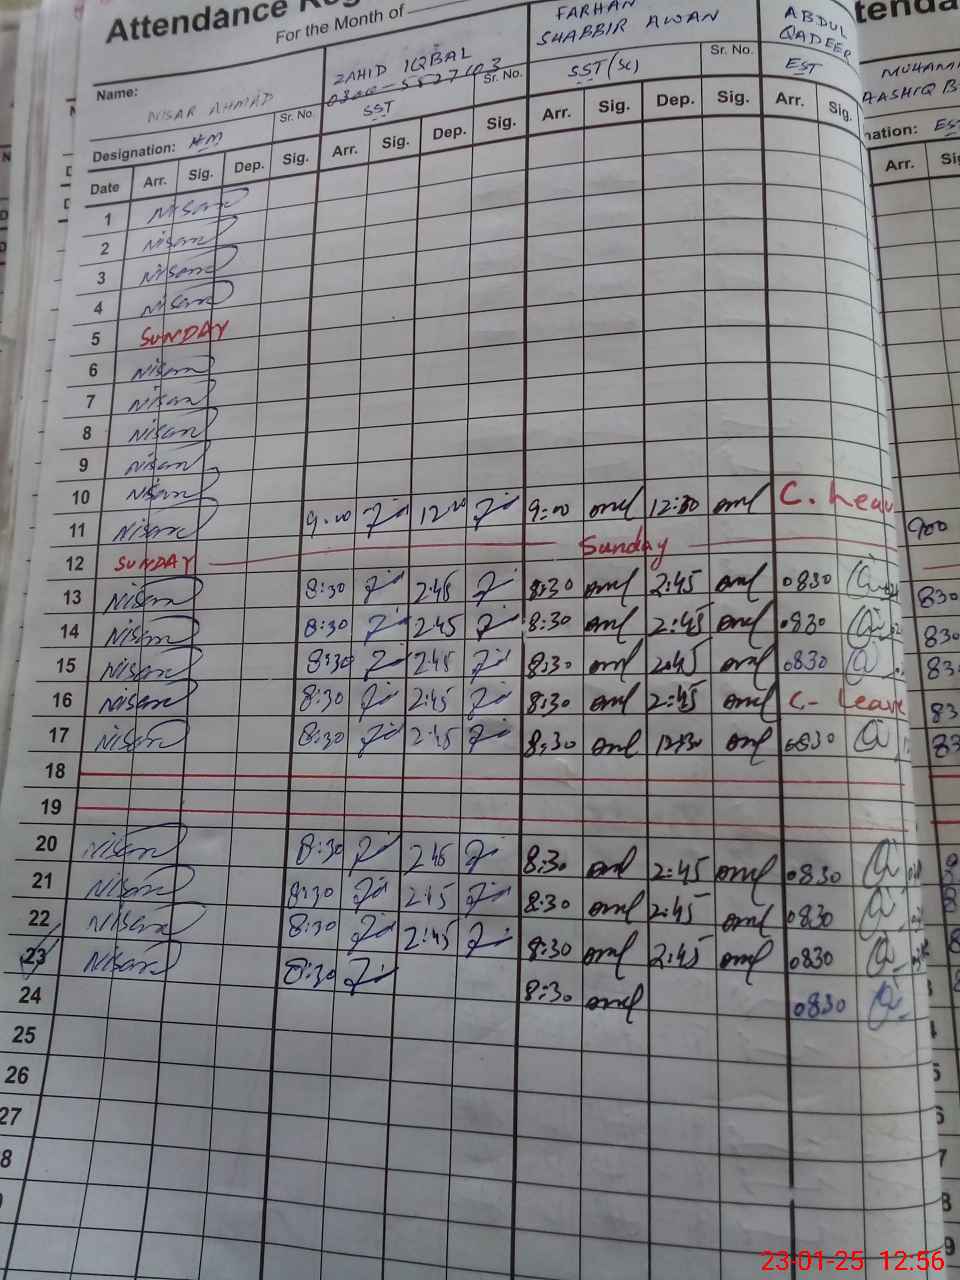 Attendance Reg
For the Month of
tenda
Name: NISAR AHMAD Sr. No.
ZAHID IQBAL
Sr. No.
FARHAN
SHABBIR AWAN
Sr. No.
ABDUL
QADEER
MUHAMM
AASHIQ
Designation: HM
SST
SST (Sc)
EST
nation: EST
Date Arr. Sig. Dep. Sig. Arr. Sig. Dep. Sig. Arr. Sig. Dep. Sig. Arr. Sig. Arr. Sig
1 Nisar
2 Nisar
3 Nisar
4 Nisar
5 SUNDAY
6 Nisar
7 Nisar
8 Nisar
9 Nisar
10 Nisar
11 Nisar 9:00 12:00 9:00 12:30 C. Leav 900
12 SUNDAY Sunday
13 Nisar 8:30 2:45 8:30 2:45 0830 830
14 Nisar 8:30 2:45 8:30 2:45 0830 830
15 Nisar 8:30 2:45 8:30 2:45 0830 83
16 Nisar 8:30 2:45 8:30 2:45 C- Leave 83
17 Nisar 8:30 2:45 8:30 12:30 0830 83
18
19
20 Nisar 8:30 2:45 8:30 2:45 0830
21 Nisar 8:30 2:45 8:30 2:45 0830
22 Nisar 8:30 2:45 8:30 2:45 0830
23 Nisar 8:30 8:30 0830
24
25
26
27
8
23-01-25 12:56